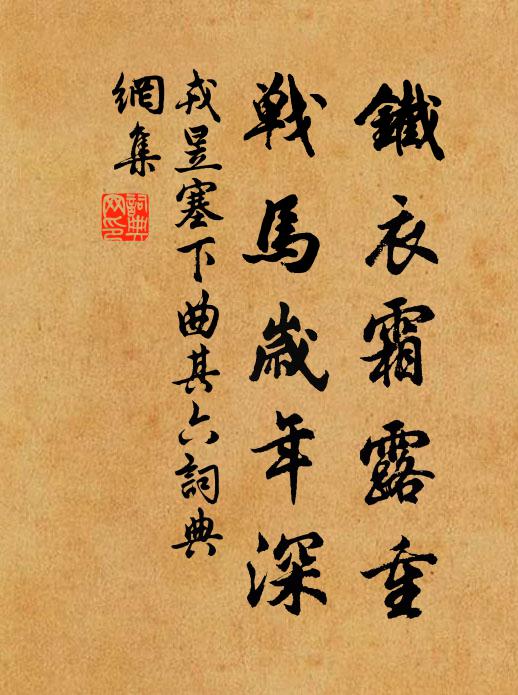 鐵衣霜露重
戰馬歲年深
戎昱塞下曲其六詞典
網集
詞典
网印